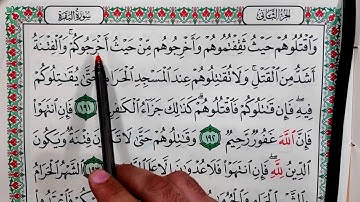 الجزء الثاني سورة البقرة
وَاقْتُلُوهُمْ حَيْثُ ثَقِفْتُمُوهُمْ وَأَخْرِجُوهُم مِّنْ حَيْثُ أَخْرَجُوكُمْ ۚ وَالْفِتْنَةُ
أَشَدُّ مِنَ الْقَتْلِ ۚ وَلَا تُقَاتِلُوهُمْ عِندَ الْمَسْجِدِ الْحَرَامِ حَتَّىٰ يُقَاتِلُوكُمْ
فِيهِ ۖ فَإِن قَاتَلُوكُمْ فَاقْتُلُوهُمْ ۗ كَذَٰلِكَ جَزَاءُ الْكَافِرِينَ ١٩١ فَإِنِ انتَهَوْا
فَإِنَّ اللَّهَ غَفُورٌ رَّحِيمٌ ١٩٢ وَقَاتِلُوهُمْ حَتَّىٰ لَا تَكُونَ فِتْنَةٌ وَيَكُونَ
الدِّينُ لِلَّهِ ۖ فَإِنِ انتَهَوْا فَلَا عُدْوَانَ إِلَّا عَلَى الشَّهْرُ الْحَرَامُ